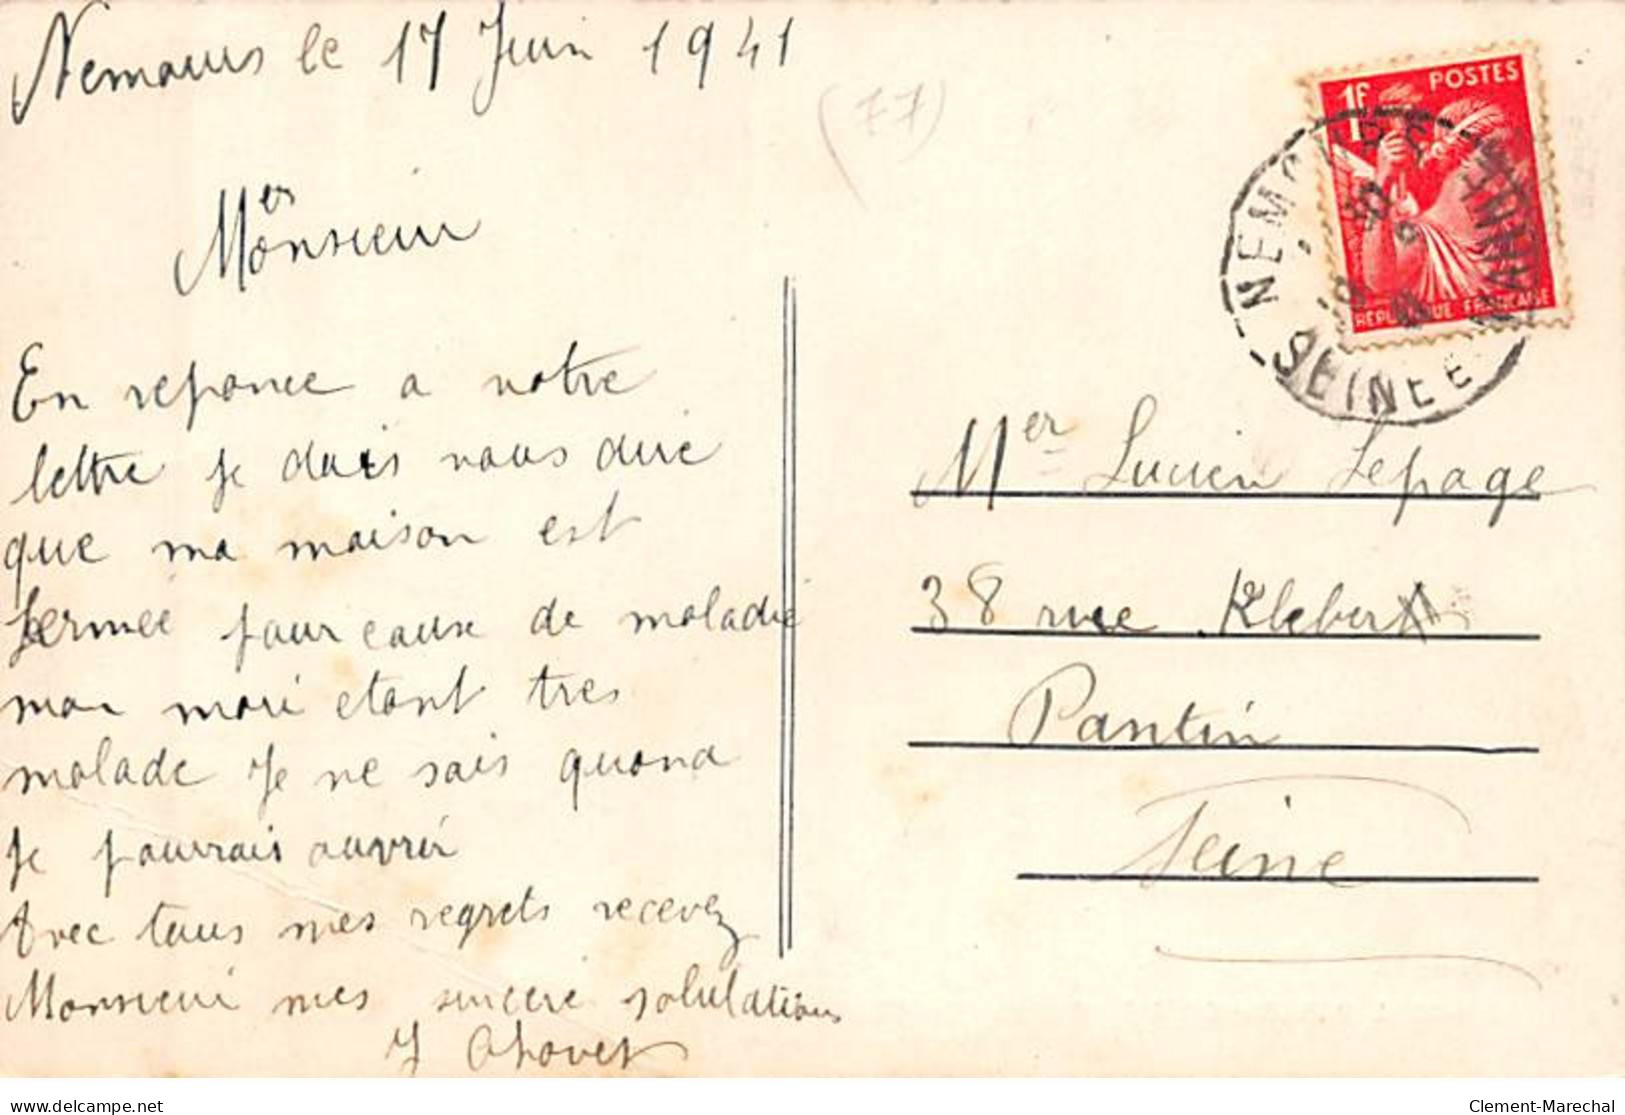 Nemours le 17 Juin 1941
(77)
Mer
Monsieur
En reponce a notre
lettre je dois vous dire
que ma maison est
fermée pour cause de maladie
mon mari etant tres
malade Je ne sais quand
je pourrais ouvrir
Avec tous mes regrets recevez
Monsieur mes sincere salutations
1F POSTES
REPUBLIQUE FRANÇAISE
NEMOURS
SEINE ET
Mer Lucien Lepage
38 rue Kleber
Pantin
Seine
delcampe.net
Clement-Marechal